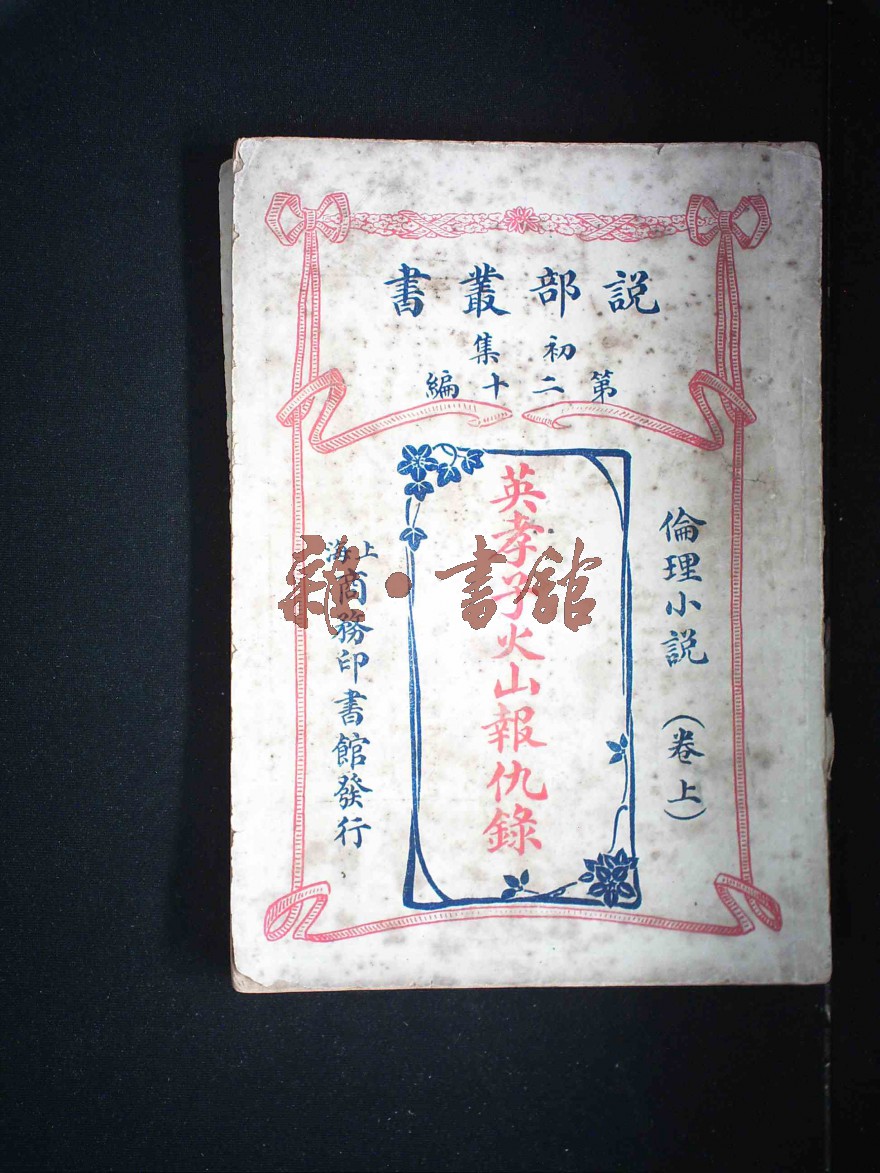 説部叢書
初集
第二十編
倫理小説 （卷上）
英孝子火山報仇錄
上海商務印書館發行
雜·書館